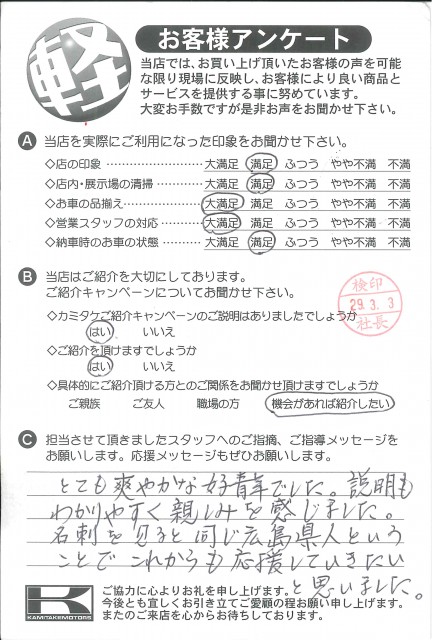 軽
お客様アンケート
当店では、お買い上げ頂いたお客様の声を可能
な限り現場に反映し、お客様により良い商品と
サービスを提供する事に努めています。
大変お手数ですが是非お声をお聞かせ下さい。
A 当店を実際にご利用になった印象をお聞かせ下さい。
◇店の印象 …………………… 大満足 満足 ふつう やや不満 不満
◇店内・展示場の清掃 ………… 大満足 満足 ふつう やや不満 不満
◇お車の品揃え ………………… 大満足 満足 ふつう やや不満 不満
◇営業スタッフの対応 ………… 大満足 満足 ふつう やや不満 不満
◇納車時のお車の状態 ………… 大満足 満足 ふつう やや不満 不満
B 当店はご紹介を大切にしております。
ご紹介キャンペーンについてお聞かせ下さい。
検印
29.3.3
社長
◇カミタケご紹介キャンペーンのご説明はありましたでしょうか
はい いいえ
◇ご紹介を頂けますでしょうか
はい いいえ
◇具体的にご紹介頂ける方とのご関係をお聞かせ頂けますでしょうか
ご親族 ご友人 職場の方 機会があれば紹介したい
C 担当させて頂きましたスタッフへのご指摘、ご指導メッセージを
お願いします。応援メッセージもぜひお願いします。
とても爽やかな好青年でした。説明も
わかりやすく親しみを感じました。
名刺を見ると同じ広島県人という
ことでこれからも応援していきたい
と思いました。
K
KAMITAKEMOTORS
ご協力に心よりお礼を申し上げます。
今後とも宜しくお引き立てご愛顧の程お願い申し上げます。
またのご来店を心からお待ちしております。